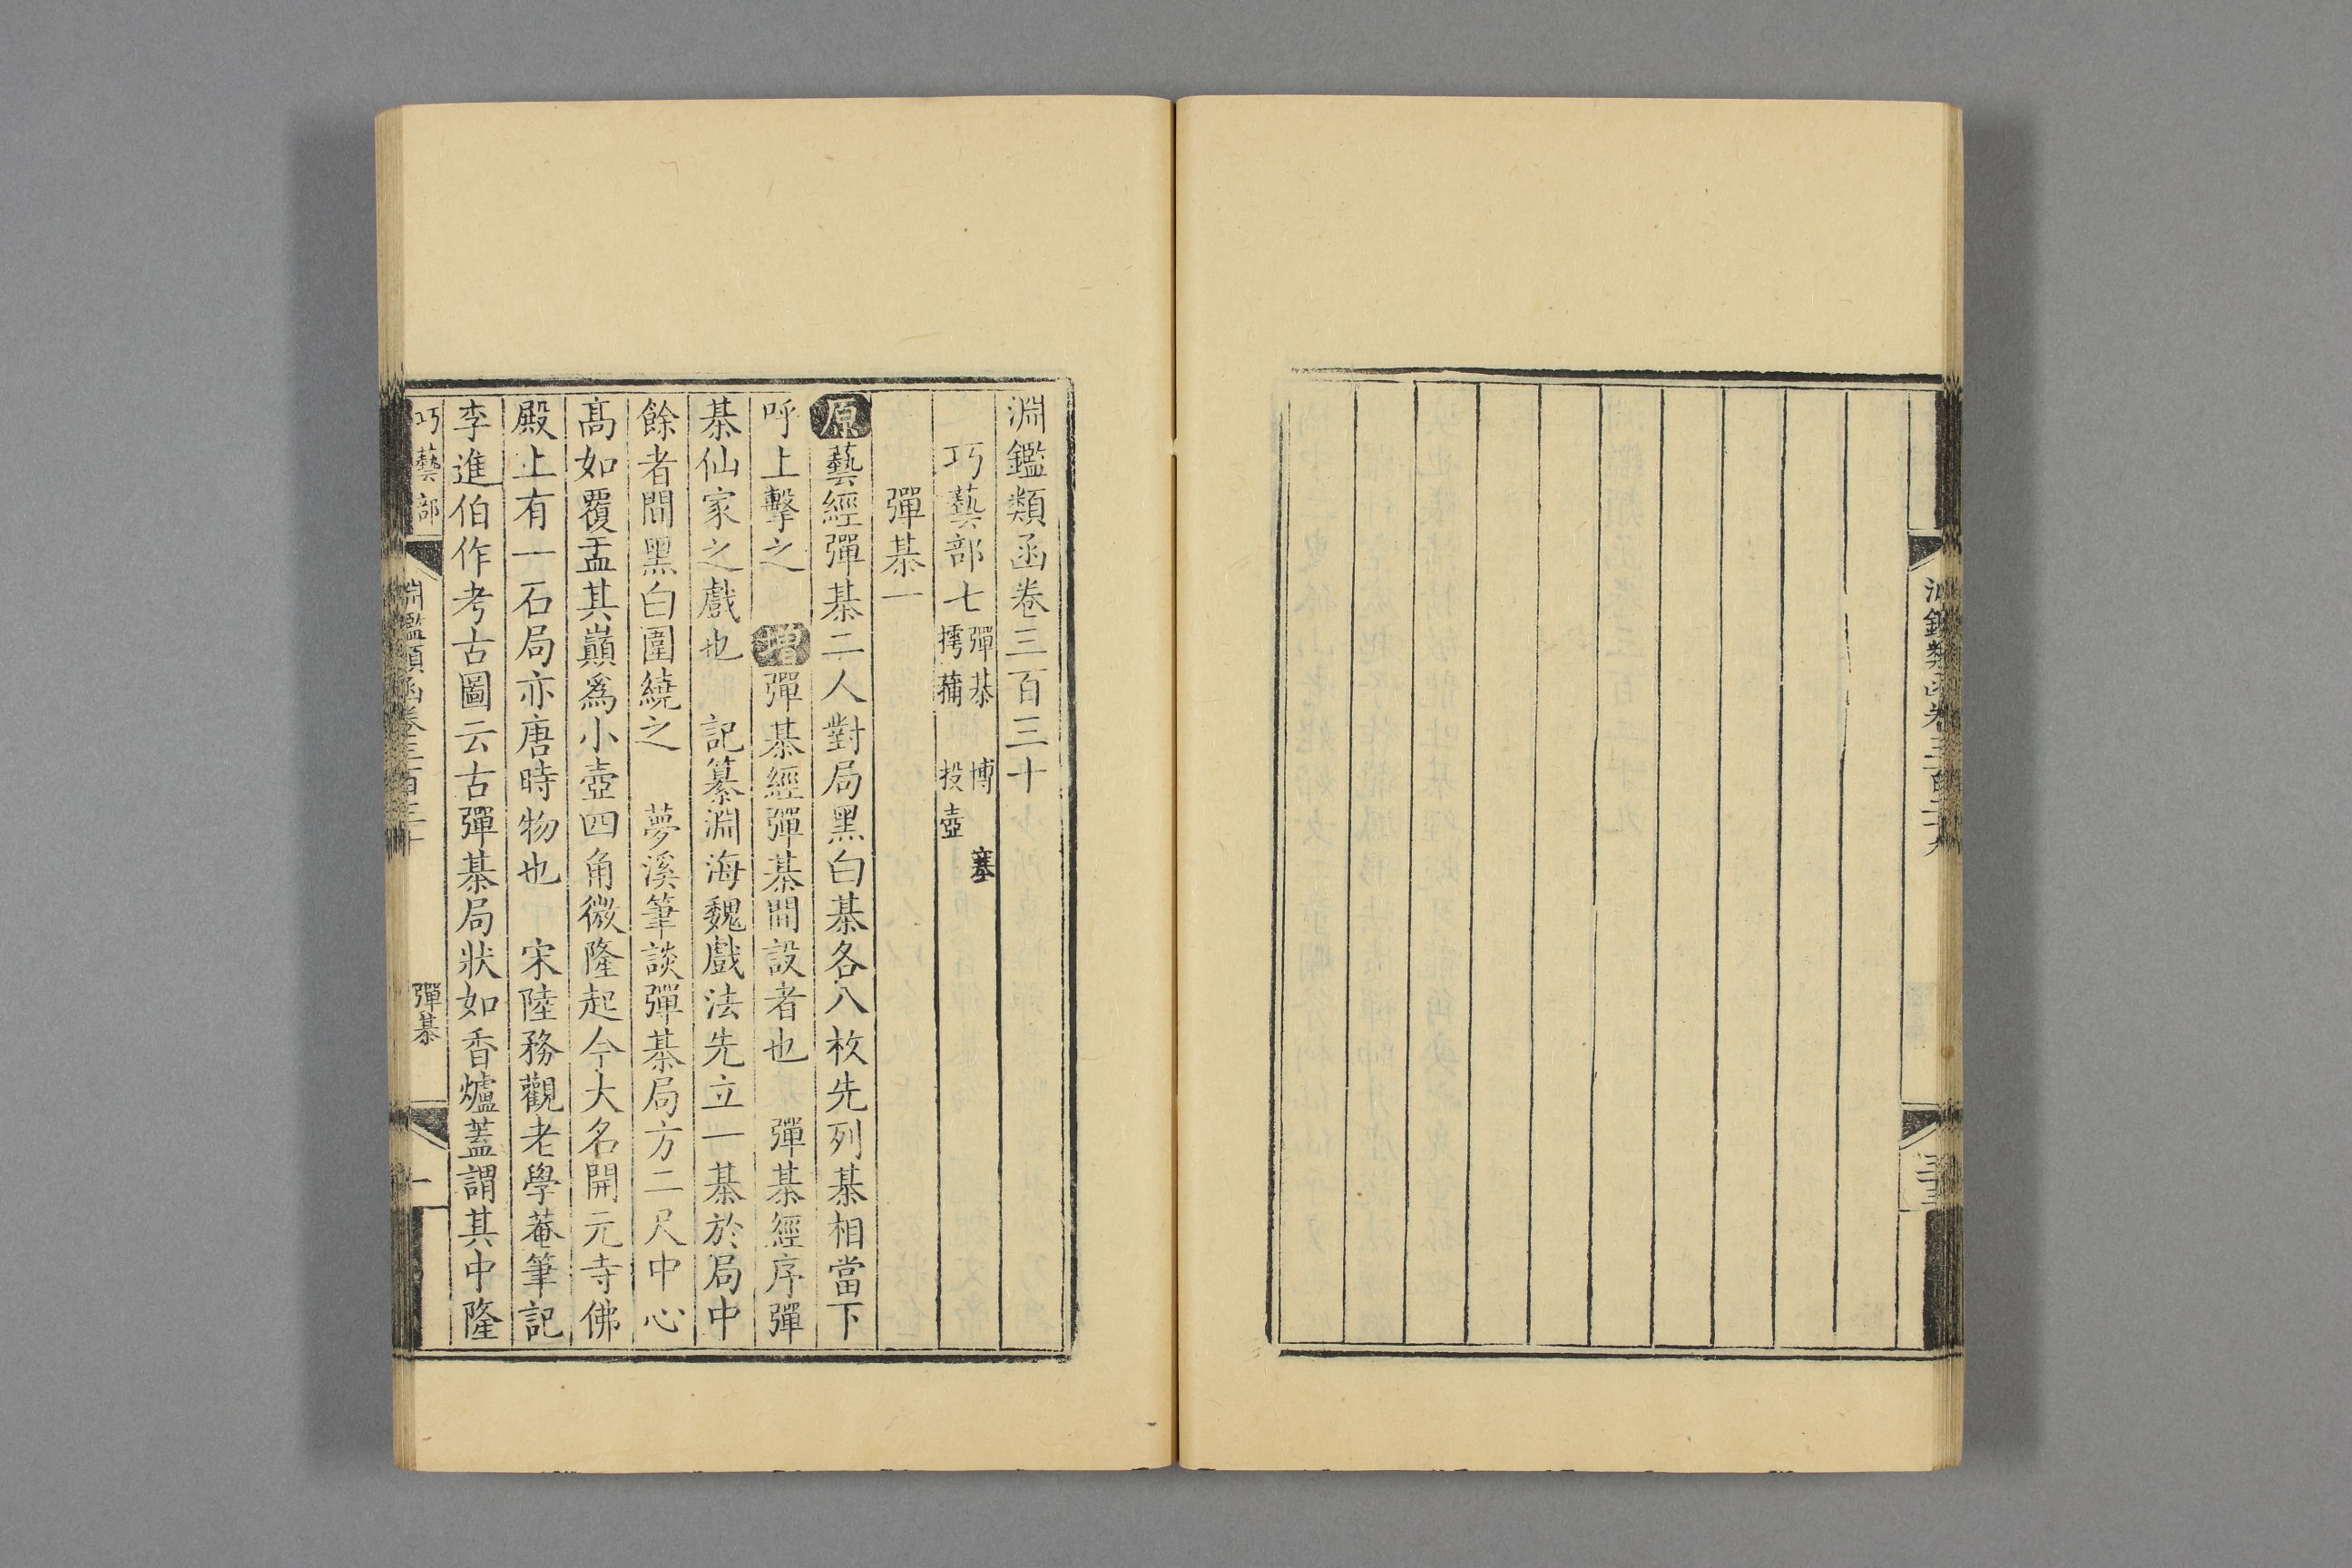 淵鑑類函卷三百三十
巧藝部七 彈棊 博塞 摴蒱 投壺
彈棊一
原藝經彈棊二人對局黑白棊各八枚先列棊相當下
呼上擊之 增彈棊經彈棊間設者也 彈棊經序彈
棊仙家之戲也 記纂淵海魏戲法先立一棊於局中
餘者間黑白圍繞之 夢溪筆談彈棊局方二尺中心
高如覆盂其巔爲小壺四角微隆起今大名開元寺佛
殿上有一石局亦唐時物也 宋陸務觀老學菴筆記
李進伯作考古圖云古彈棊局狀如香爐蓋謂其中隆
巧藝部 淵鑑類函卷三百三十 彈棊 一